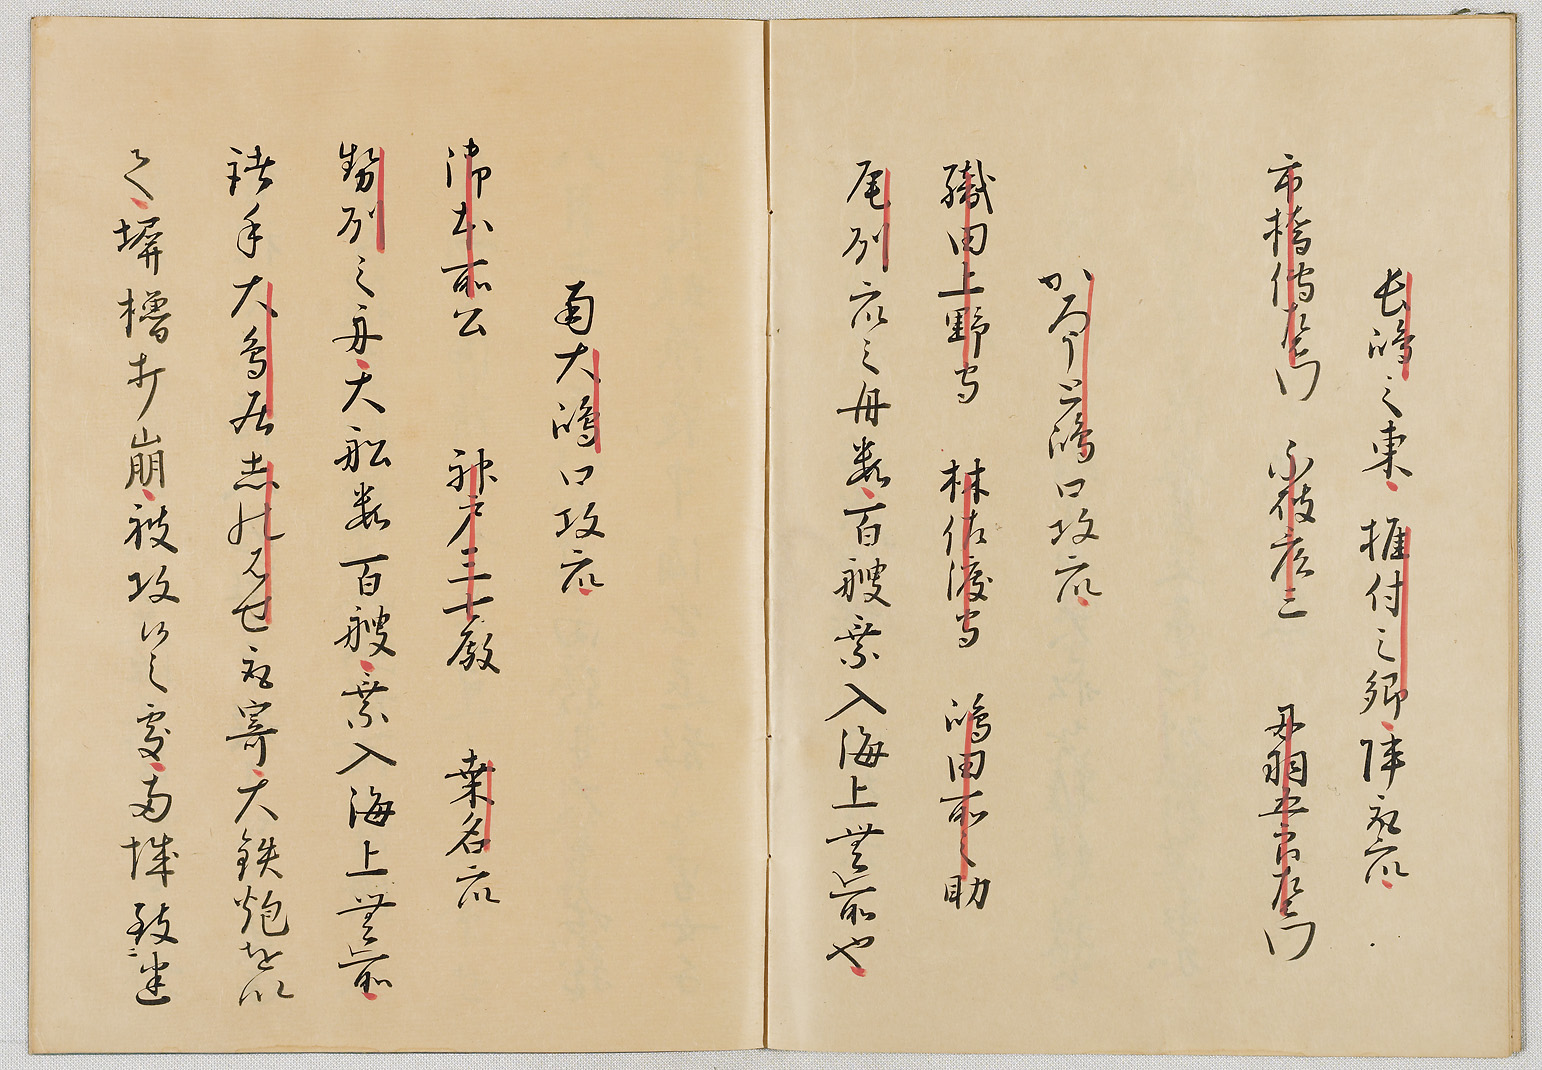 長嶋之東推付之郷陣取衆
市橋傳左衛門　不破彦三　丹羽五郎左衛門
かろうと嶋口攻衆
織田上野守　林佐渡守　嶋田所之助
尾州衆之舟数百艘乗入海上無所也
南大嶋口攻衆
御本所公　神戸三七殿　桑名衆
勢州之舟大船数百艘乗入海上無所
諸手大鳥居志のはせ取寄大鉄炮を以
て塀櫓打崩被攻候之處両城致迷